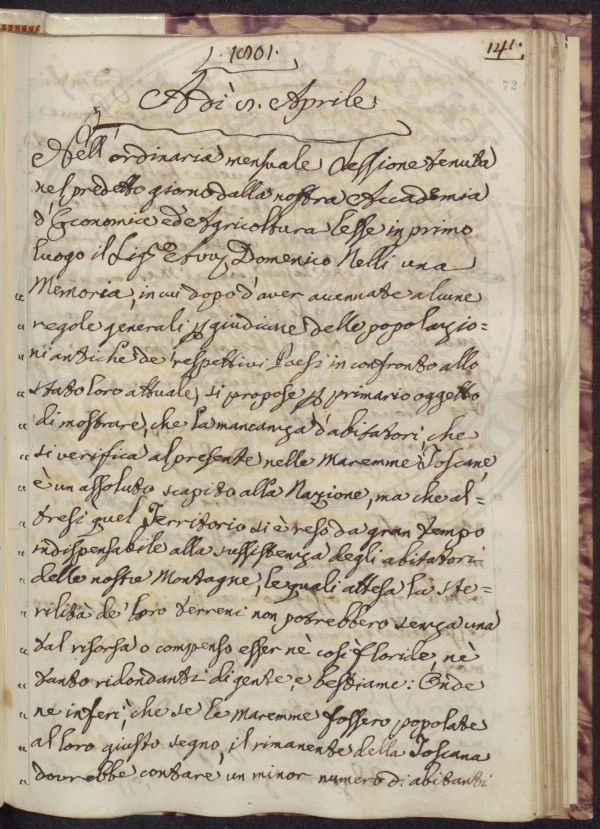 141.
1801.
72
Adì 1. Aprile
Nell'ordinaria mensuale Sessione tenuta
nel predetto giorno dalla nostra Accademia
d'Economia ed Agricoltura lesse in primo
luogo il Sig.^e Domenico Nelli una
„ Memoria, in cui dopo d'aver accennate alcune
„ regole generali p giudicare delle popolazio=
„ ni antiche de' respettivi Paesi in confronto allo
„ stato loro attuale, si propose p primario oggetto
„ di mostrare, che la mancanza d'abitatori, che
„ si verifica al presente nelle Maremme Toscane,
„ è un assoluto scapito alla Nazione, ma che al=
„ tresì quel Territorio si è reso da gran tempo
„ indispensabile alla sussistenza degli abitatori
„ delle nostre Montagne, le quali attesa la ste=
„ rilità de' loro terreni non potrebbero senza una
„ tal risorsa o compenso esser nè così floride, nè
„ tanto ridondanti di gente, e bestiame: Onde
„ ne inferì, che se le Maremme fossero popolate
„ al loro giusto segno, il rimanente della Toscana
„ dovrebbe contare un minor numero di abitanti